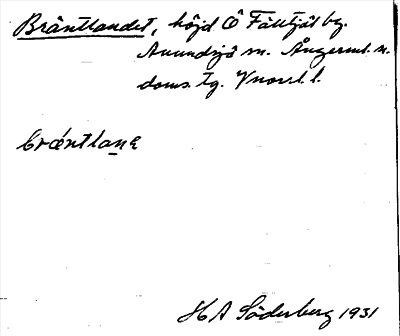 Bräntlandet, höjd Ö Fälltjäl by.
Anundsjö sn. Ångerml. n.
doms. tg. Vnorrl. l.
bræ̀ntlanɛ
H A Söderberg 1931